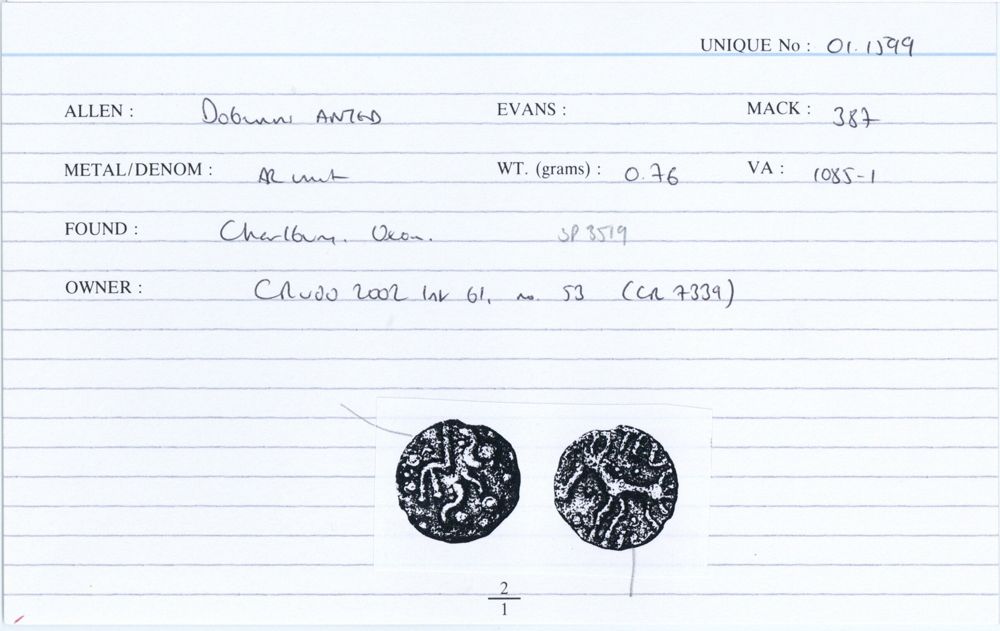 UNIQUE No : 01.1599
ALLEN : Dobunni ANTED EVANS : MACK : 387
METAL/DENOM : AR unit WT. (grams) : 0.76 VA : 1085-1
FOUND : Charlbury. Oxon. SP 3519
OWNER : 2002 61, no. 53 (CR 7339)
2
1